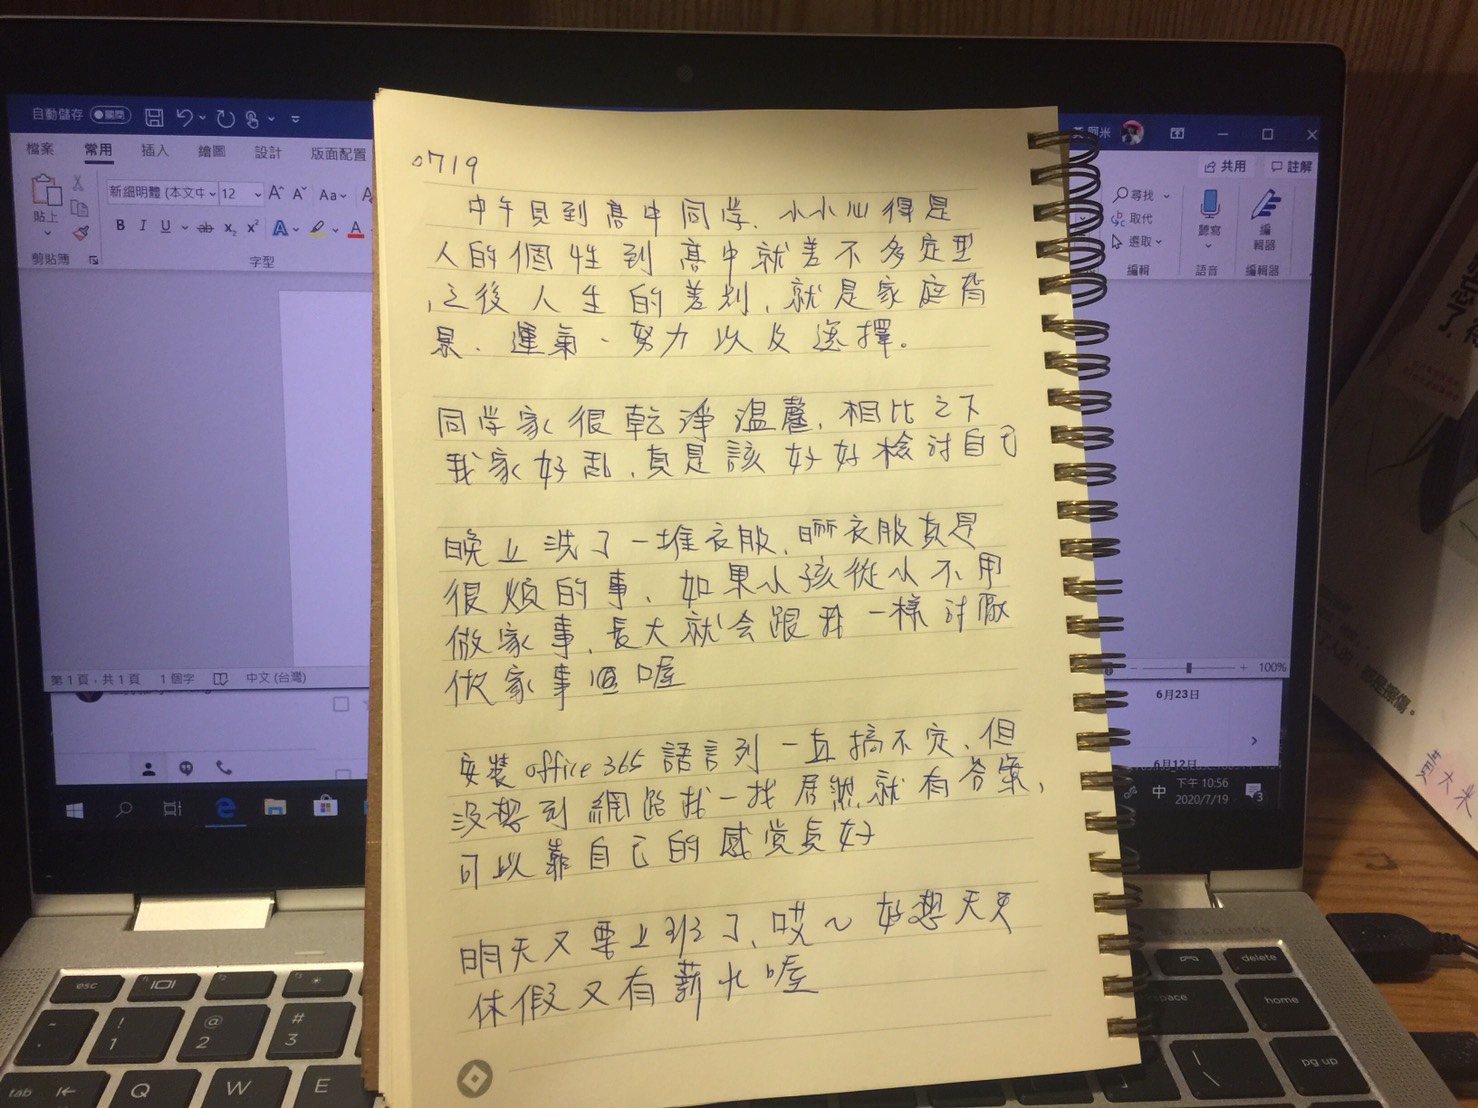 自動儲存 關閉
阿米
檔案 常用 插入 繪圖 設計 版面配置
共用 註解
新細明體 (本文中 12
Aa
貼上
B I U ab x₂ x² A A
剪貼簿 字型
尋找
取代
選取
編輯
聽寫
語音
編輯器
編輯器
第1頁,共1頁 1個字 中文 (台灣)
100%
6月23日
6月12日
中 下午 10:56
2020/7/19
3
0719
中午見到高中同學、小小心得是
人的個性到高中就差不多定型
,之後人生的差別,就是家庭背
景、運氣、努力以及選擇。
同學家很乾淨溫馨,相比之下
我家好亂,真是該好好檢討自己
晚上洗了一堆衣服,晒衣服真是
很煩的事、如果小孩從小不用
做家事、長大就會跟我一樣討厭
做家事喔
安裝office 365 語言列一直搞不定、但
沒想到網路找一找居然就有答案、
可以靠自己的感覺真好
明天又要上班了、哎~好想天天
休假又有薪水喔
esc
delete
home
pg up
tab
! 1
@ 2
# 3
Q W E
黃大米